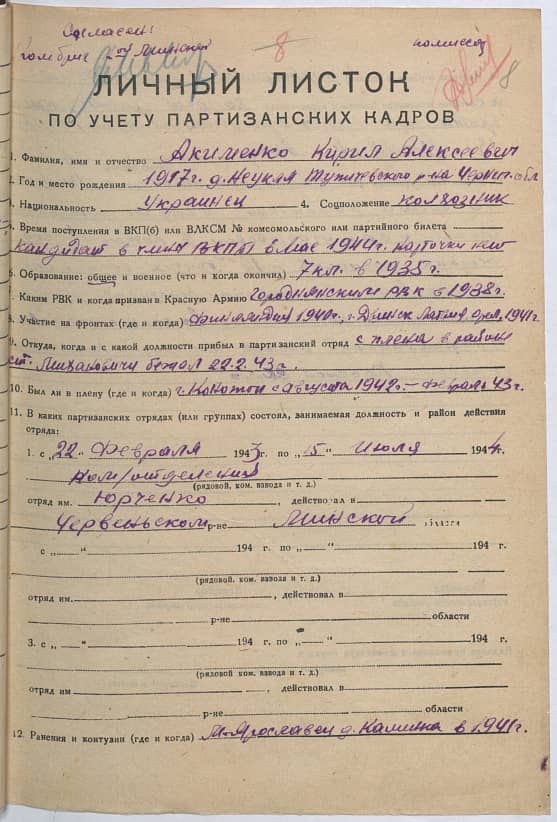 Согласен:
комбриг
комиссар
8
8
ЛИЧНЫЙ ЛИСТОК
ПО УЧЕТУ ПАРТИЗАНСКИХ КАДРОВ
1. Фамилия, имя и отчество Акименко Кирил Алексеевич
2. Год и место рождения 1917 г. д. Неукля Тупичевского р-на Черниг. обл
3. Национальность Украинец 4. Соцположение колхозник
5. Время поступления в ВКП(б) или ВЛКСМ № комсомольского или партийного билета
Кандидат в члены ВКПб в мае 1944 г. карточки нет
6. Образование: общее и военное (что и когда окончил) 7 кл. в 1935 г.
7. Каким РВК и когда призван в Красную Армию Городнянским РВК в 1938 г.
8. Участие на фронтах (где и когда) Финляндия 1940 г., г. Двинск Латвия 1941 г.
9. Откуда, когда и с какой должности прибыл в партизанский отряд с плена в районе
ст. Михановичи бежал 22.2.43 г.
10. Был ли в плену (где и когда) с августа 1942 г. – февраль 43 г.
11. В каких партизанских отрядах (или группах) состоял, занимаемая должность и район действия
отряда:
1. с „22" Февраля 1943 г. по „15" Июля 1944 г.
Ком/отделения
(рядовой, ком. взвода и т. д.)
отряд им. Юрченко, действовал в
Червеньском р-не Минской области
с „ " 194 г. по „ " 194 г.
(рядовой, ком. взвода и т. д.)
отряд им. , действовал в
р-не области
3. с „ " 194 г. по „ " 194 г.
(рядовой, ком. взвода и т. д.)
отряд им , действовал в
р-не области
12. Ранения и контузии (где и когда) М-Ярославец д. Калинка в 1941 г.